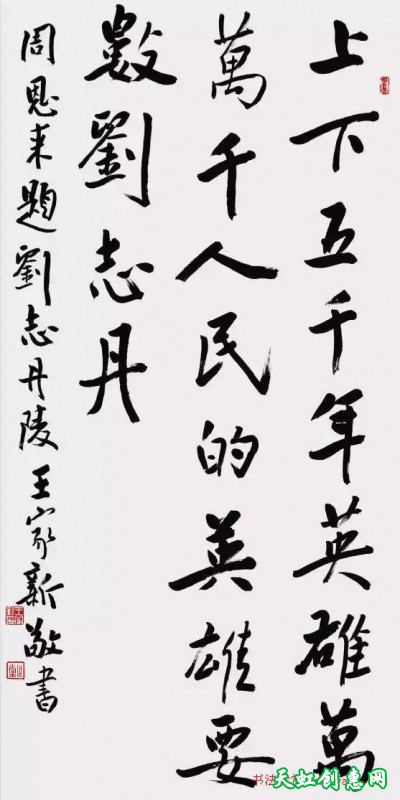 上下五千年英雄萬
萬千人民的英雄要
數劉志丹
周恩来題劉志丹陵王家新敬書
书法
天虹创惠网